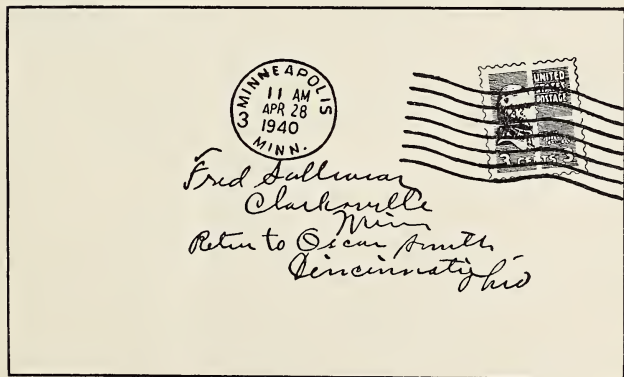 MINNEAPOLIS
11 AM
APR 28
1940
3
MINN.
UNITED
STATES
POSTAGE
3 CENTS 3
Fred Sullivan
Clarksville
Minn
Return to Oscar Smith
Cincinnati Ohio